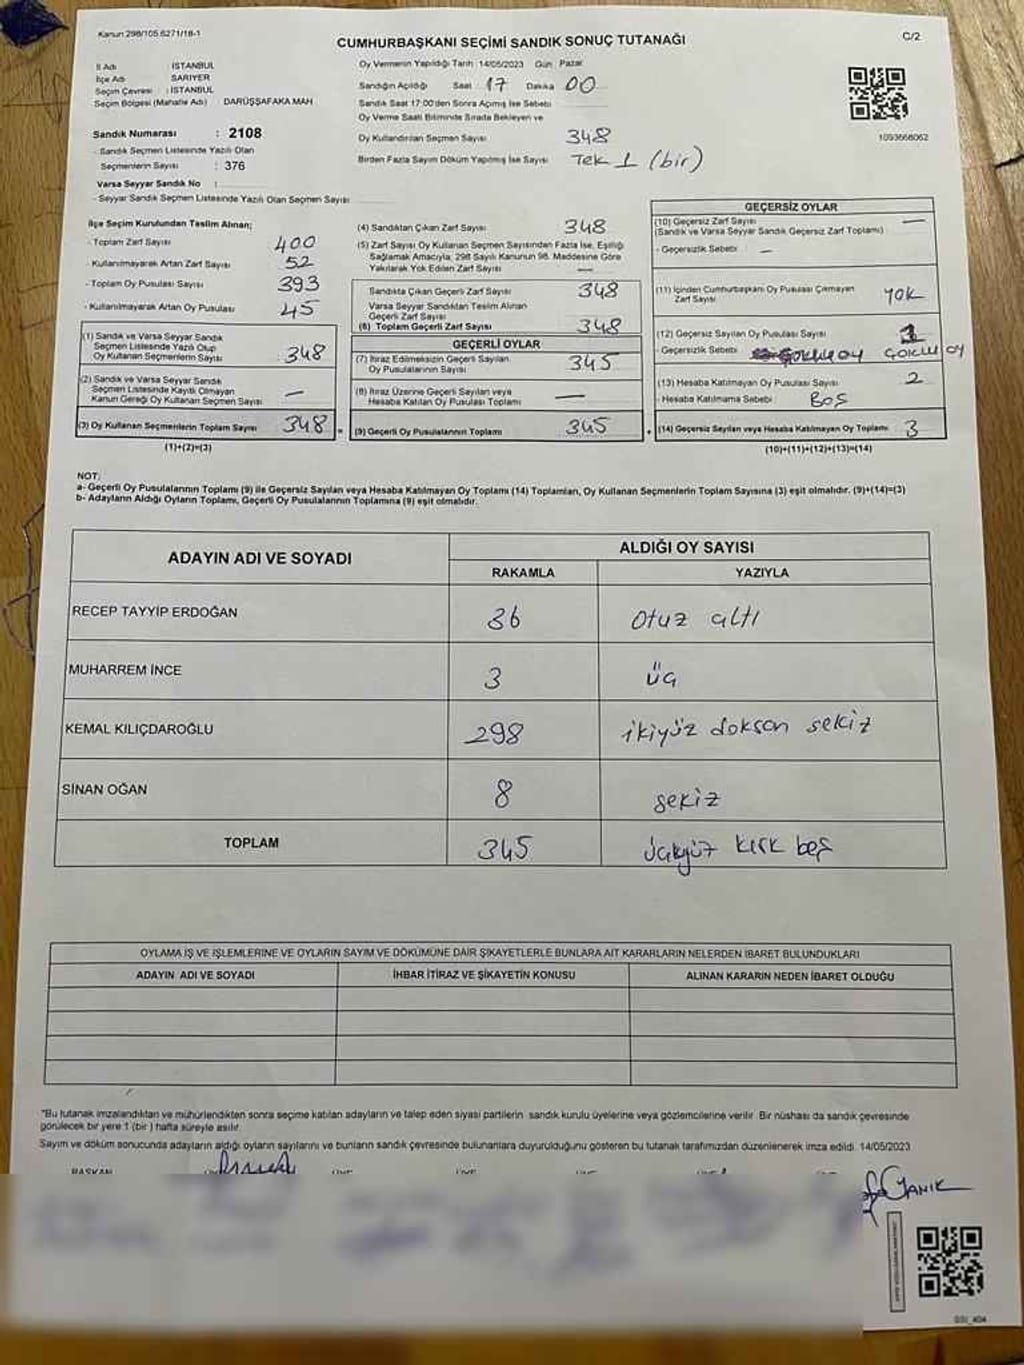 Kanun 298/105.6271/18-1
C/2
CUMHURBAŞKANI SEÇİMİ SANDIK SONUÇ TUTANAĞI
İl Adı İSTANBUL
İlçe Adı SARIYER
Seçim Çevresi : İSTANBUL
Seçim Bölgesi (Mahalle Adı) DARÜŞŞAFAKA MAH
Sandık Numarası : 2108
- Sandık Seçmen Listesinde Yazılı Olan
Seçmenlerin Sayısı : 376
Varsa Seyyar Sandık No :
- Seyyar Sandık Seçmen Listesinde Yazılı Olan Seçmen Sayısı
Oy Vermenin Yapıldığı Tarih : 14/05/2023 Gün : Pazar
Sandığın Açıldığı Saat 17 Dakika 00
Sandık Saat 17:00'den Sonra Açılmış İse Sebebi
Oy Verme Saati Bitiminde Sırada Bekleyen ve
Oy Kullandırılan Seçmen Sayısı 348
Birden Fazla Sayım Döküm Yapılmış İse Sayısı Tek 1 (bir)
1093668062
İlçe Seçim Kurulundan Teslim Alınan;
- Toplam Zarf Sayısı 400
- Kullanılmayarak Artan Zarf Sayısı 52
- Toplam Oy Pusulası Sayısı 393
- Kullanılmayarak Artan Oy Pusulası 45
(1) Sandık ve Varsa Seyyar Sandık
Seçmen Listesinde Yazılı Olup
Oy Kullanan Seçmenlerin Sayısı 348
(2) Sandık ve Varsa Seyyar Sandık
Seçmen Listesinde Kayıtlı Olmayan
Kanun Gereği Oy Kullanan Seçmen Sayısı —
(3) Oy Kullanan Seçmenlerin Toplam Sayısı 348 =
(1)+(2)=(3)
(4) Sandıktan Çıkan Zarf Sayısı 348
(5) Zarf Sayısı Oy Kullanan Seçmen Sayısından Fazla İse, Eşitliği
Sağlamak Amacıyla, 298 Sayılı Kanunun 98. Maddesine Göre
Yakılarak Yok Edilen Zarf Sayısı —
Sandıkta Çıkan Geçerli Zarf Sayısı 348
Varsa Seyyar Sandıktan Teslim Alınan
Geçerli Zarf Sayısı
(6) Toplam Geçerli Zarf Sayısı 348
GEÇERLİ OYLAR
(7) İtiraz Edilmeksizin Geçerli Sayılan
Oy Pusulalarının Sayısı 345
(8) İtiraz Üzerine Geçerli Sayılan veya
Hesaba Katılan Oy Pusulası Toplamı —
(9) Geçerli Oy Pusulalarının Toplamı 345 +
GEÇERSİZ OYLAR
(10) Geçersiz Zarf Sayısı —
(Sandık ve Varsa Seyyar Sandık Geçersiz Zarf Toplamı)
- Geçersizlik Sebebi —
(11) İçinden Cumhurbaşkanı Oy Pusulası Çıkmayan
Zarf Sayısı YOK
(12) Geçersiz Sayılan Oy Pusulası Sayısı 1
- Geçersizlik Sebebi ÇOKLU OY ÇOKLU OY
(13) Hesaba Katılmayan Oy Pusulası Sayısı 2
- Hesaba Katılmama Sebebi BOŞ
(14) Geçersiz Sayılan veya Hesaba Katılmayan Oy Toplamı 3
(10)+(11)+(12)+(13)=(14)
NOT:
a- Geçerli Oy Pusulalarının Toplamı (9) ile Geçersiz Sayılan veya Hesaba Katılmayan Oy Toplamı (14) Toplamları, Oy Kullanan Seçmenlerin Toplam Sayısına (3) eşit olmalıdır. (9)+(14)=(3)
b- Adayların Aldığı Oyların Toplamı, Geçerli Oy Pusulalarının Toplamına (9) eşit olmalıdır.
ADAYIN ADI VE SOYADI
ALDIĞI OY SAYISI
RAKAMLA YAZIYLA
RECEP TAYYİP ERDOĞAN 36 otuz altı
MUHARREM İNCE 3 üç
KEMAL KILIÇDAROĞLU 298 ikiyüz doksan sekiz
SİNAN OĞAN 8 sekiz
TOPLAM 345 üçyüz kırk beş
OYLAMA İŞ VE İŞLEMLERİNE VE OYLARIN SAYIM VE DÖKÜMÜNE DAİR ŞİKAYETLERLE BUNLARA AİT KARARLARIN NELERDEN İBARET BULUNDUKLARI
ADAYIN ADI VE SOYADI İHBAR İTİRAZ VE ŞİKAYETİN KONUSU ALINAN KARARIN NEDEN İBARET OLDUĞU
*Bu tutanak imzalandıktan ve mühürlendikten sonra seçime katılan adayların ve talep eden siyasi partilerin sandık kurulu üyelerine veya gözlemcilerine verilir. Bir nüshası da sandık çevresinde
görülecek bir yere 1 (bir) hafta süreyle asılır.
Sayım ve döküm sonucunda adayların aldığı oyların sayılarını ve bunların sandık çevresinde bulunanlara duyurulduğunu gösteren bu tutanak tarafımızdan düzenlenerek imza edildi. 14/05/2023
BAŞKAN